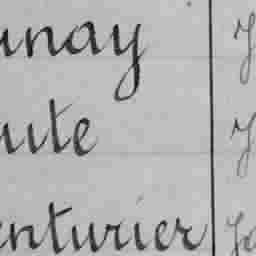 unay
ute
enturier